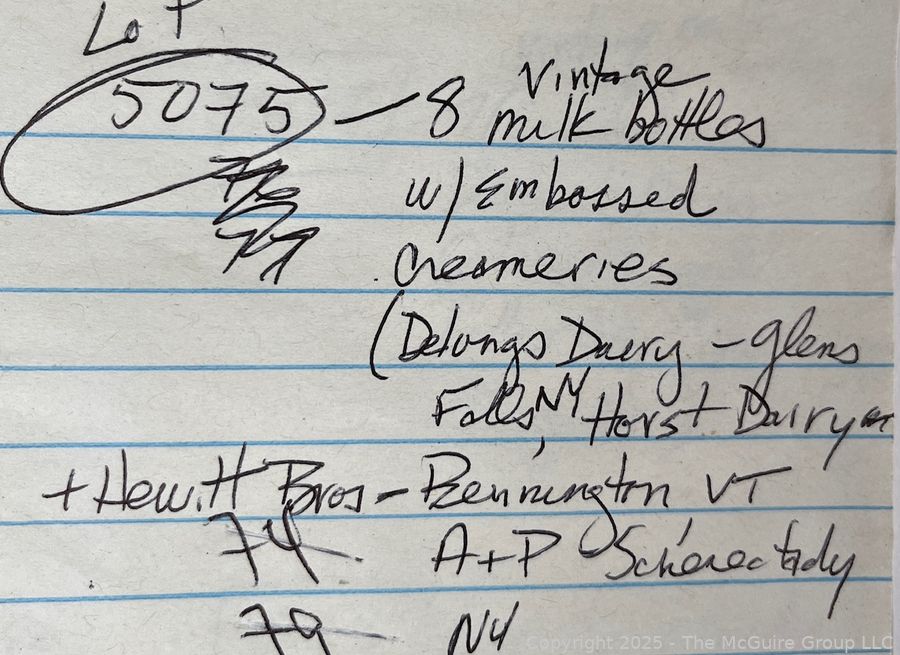 Lot
5075 — 8 vintage
milk bottles
76
w/ Embossed
77
creameries
(Delongs Dairy - Glens
Falls, NY, Horst Dairy
+ Hewitt Bros - Bennington VT
74 A+P Schenectady
79 NY
Copyright 2025 - The McGuire Group LLC